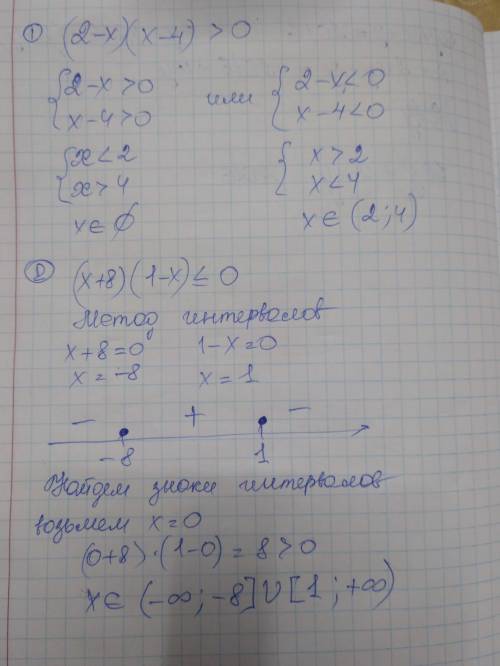 ① (2-x)(x-4) > 0
{ 2-x > 0 или { 2-x < 0
x-4 > 0 x-4 < 0
{ x < 2 { x > 2
x > 4 x < 4
x ∈ ∅ x ∈ (2;4)
② (x+8)(1-x) ≤ 0
Метод интервалов
x+8=0 1-x=0
x=-8 x=1
- + -
-8 1
Найдем знаки интервалов
возьмем x=0
(0+8)·(1-0) = 8 > 0
x ∈ (-∞; -8] U [1; +∞)